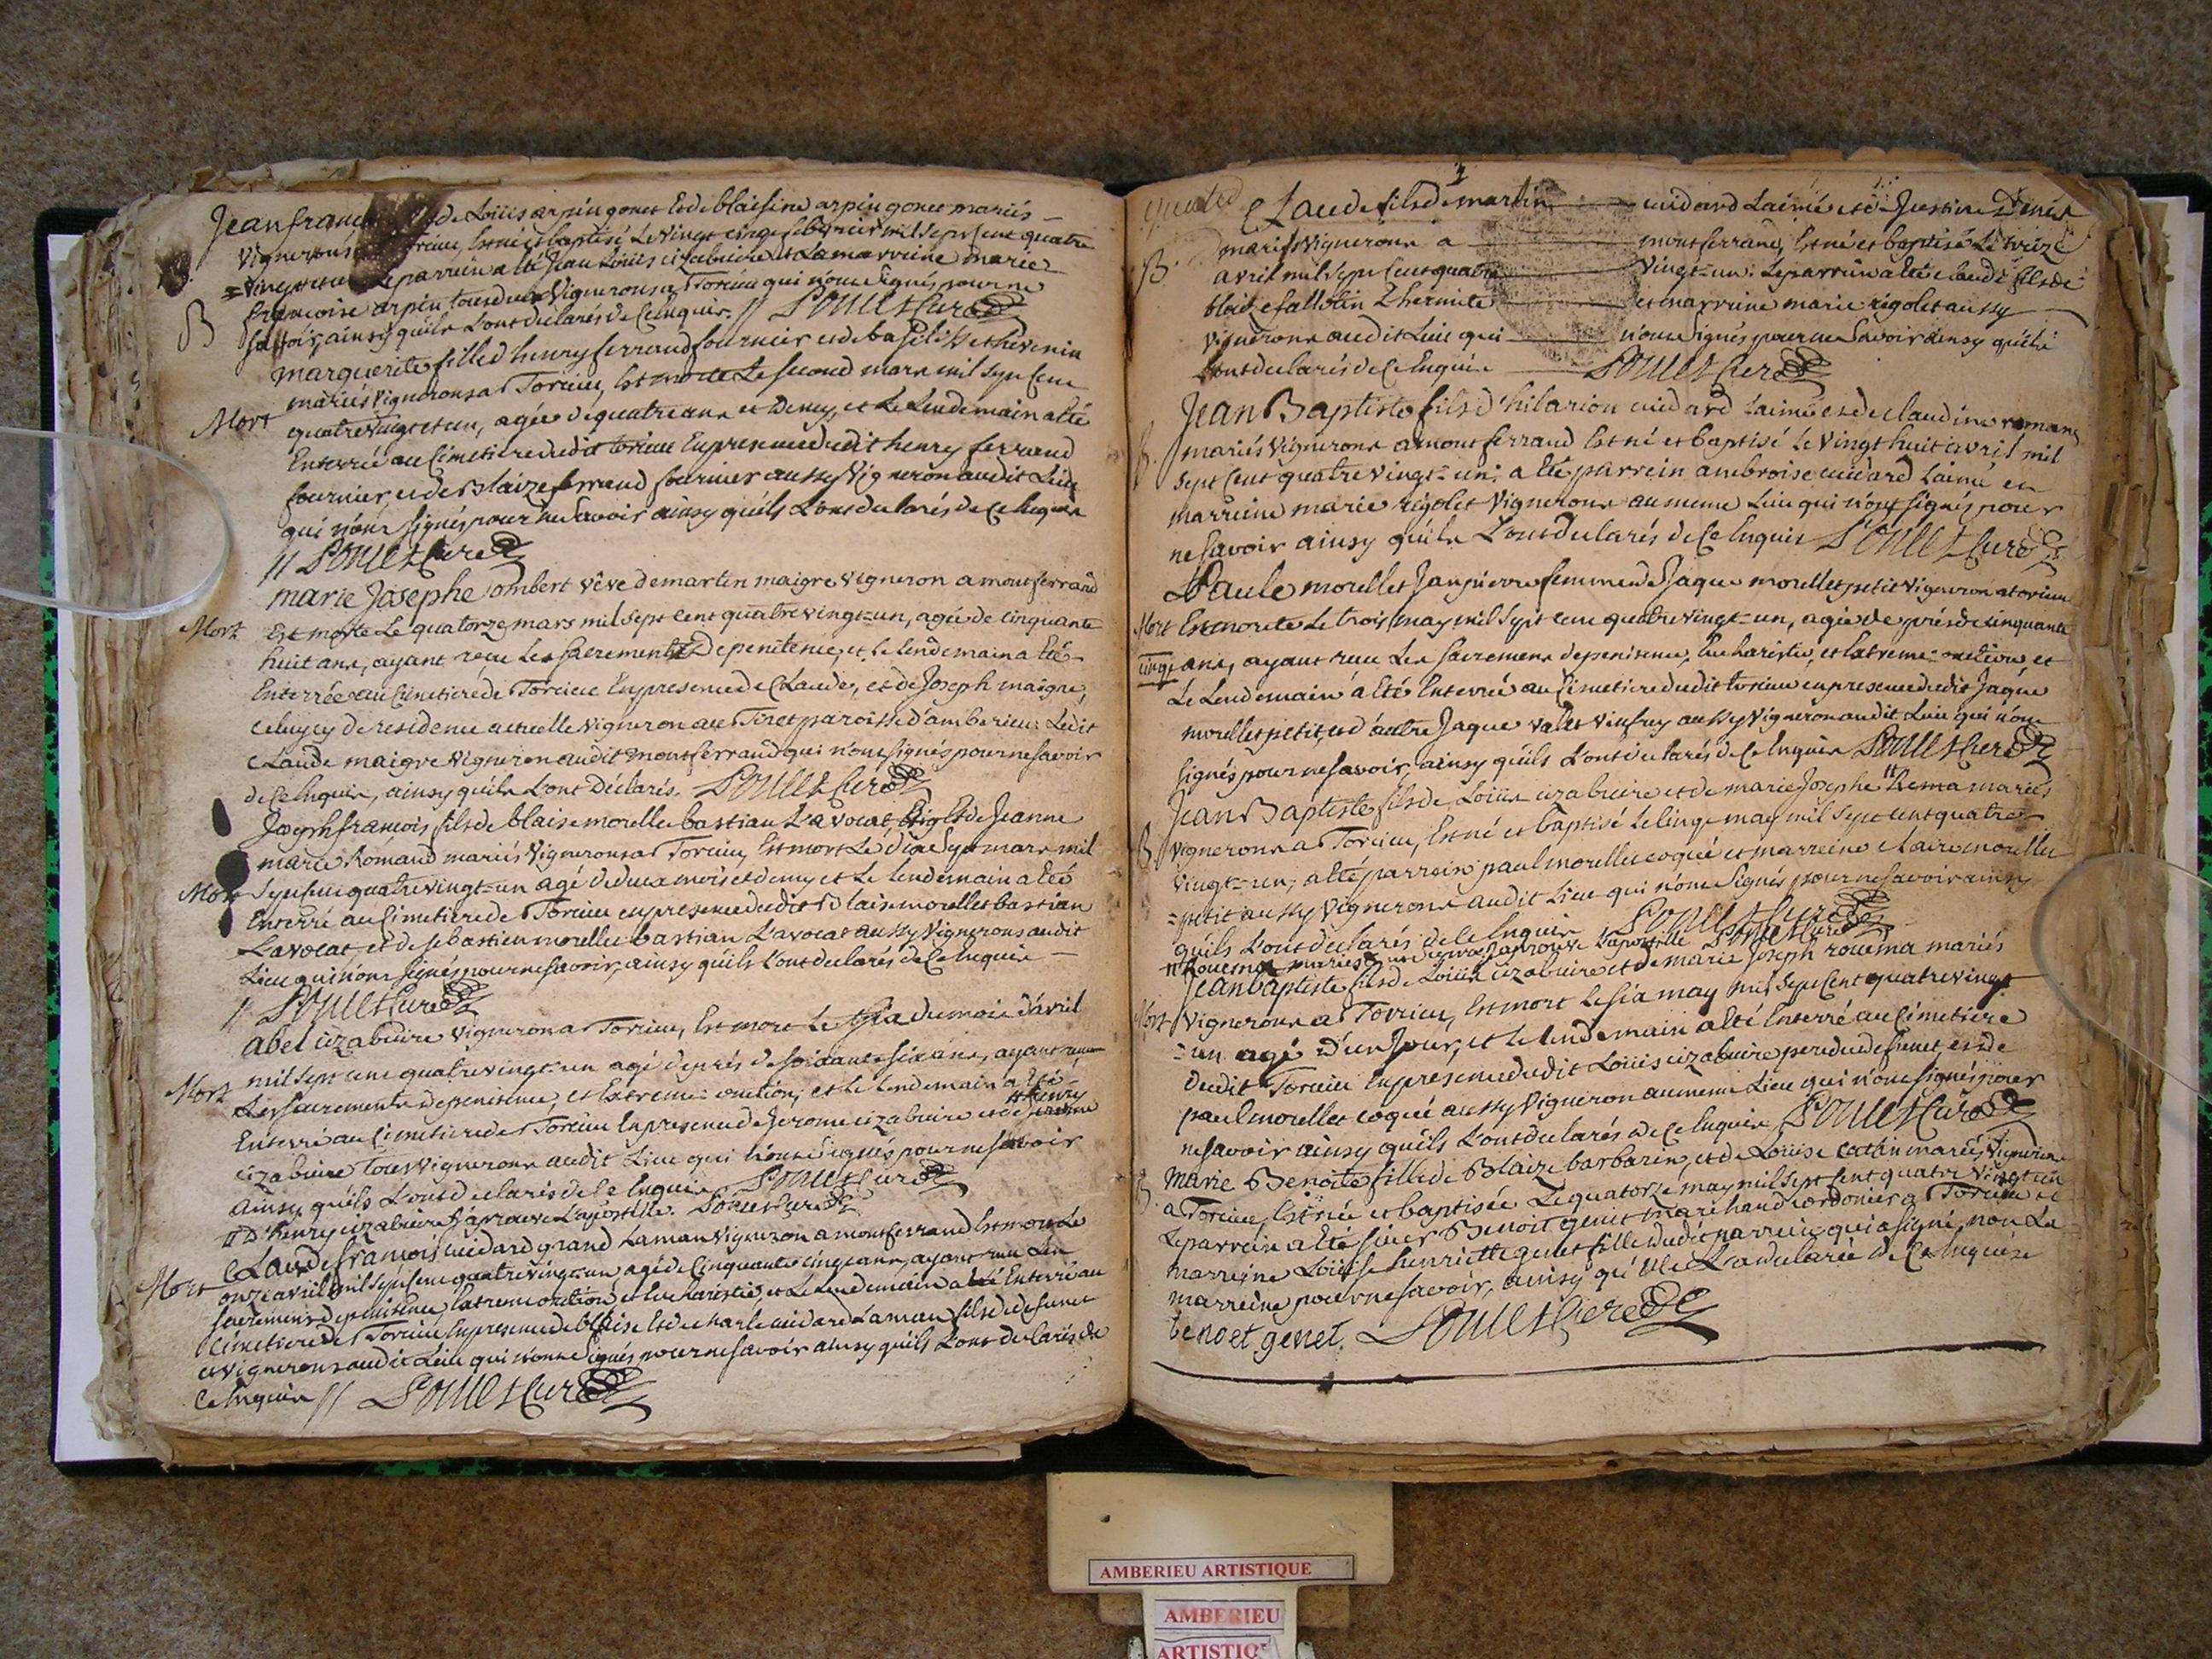 Jean francois de Loüis arpin gonet Et de blaisine arpin gonet mariés
vignerons Torcieu, Est né et baptisé Le Vingt cinq febvrier mil sept Cent quatre
=vingt et un Le parrein a Eté Jean Louis cizabuire et La marreine marie
B francoise arpin tous deux Vignerons a Torcieu qui n'ont signés pour ne
savoir, ainsy quils L'ont declarés de Ce Enquis. // Poullet Curé
marguerite fille d henry ferrand fournier et de basilisse thevenin
mariés vignerons a Torcieu, Est morte Le second mars mil sept Cent
Mort quatrevingt et un, agée de quatre ans et Demy, et Le Lendemain a Eté
Enterrée au Cimetiere dudit torcieu En presence dudit henry ferrand
fournier et de Blaize ferrand fournier aussy Vigneron audit Lieu
qui n'ont signés pour ne savoir ainsy quils L'ont declarés de Ce Enquis
// Poullet Curé
marie Josephe ombert vêve de martin maigre vigneron a montferrand
Mort Est morte Le quatorze mars mil sept Cent quatre vingt=un, agée de cinquante
huit ans, ayant recu Les sacrements De penitence, et le lendemain a Eté
Enterrée au Cimetiere de Torcieu En presence de Claude, et de Joseph maigre,
celuycy de residence actuelle vigneron au Tiret paroisse d'amberieu; Ledit
Claude maigre vigneron audit montferrand qui n'ont signés pour ne savoir
de Ce Enquis, ainsy quils L'ont Déclarés. Poullet Curé
Joseph francois fils de blaise morellet bastian L'avocat, Et de Jeanne
marie Romand mariés vignerons a Torcieu, Est mort Le dix sept mars mil
Mort sept Cent quatre vingt=un agé de deux mois et demy et Le lendemain a Eté
Enterré au Cimetiere de Torcieu en presence dudit Blaise morellet bastian
L'avocat, et de sebastien morellet bastian L'avocat aussy Vignerons audit
Lieu qui n'ont signés pour ne savoir, ainsy quils L'ont declarés de Ce Enquis
// Poullet Curé
Abel cizabuire vigneron a Torcieu, Est mort Le six du mois d'avril
mil sept cent quatre vingt=un agé de près de soixante six ans, ayant recu
Mort Les sacrements de penitence, et Extreme=onction, et Le lendemain a Eté
Enterré au Cimetiere de Torcieu En presence de Jerome cizabuire et de # henry
cizabuire Tous Vignerons audit Lieu qui n'ont signés pour ne savoir
Ainsy quils L'ont declarés de Ce Enquis Poullet Curé
# D'henry cizabuire J'aprouve L'apostille. Poullet Curé
Claude francois cuidard grand Laman vigneron a montferrand Est mort Le
Mort onze avril mil sept cent quatre vingt=un agé de Cinquante cinq ans, ayant recu Les
sacrements de penitence, Extreme onction, et Eucharistie, et Le lendemain a Eté Enterré au
Cimetiere de Torcieu En presence de blaise Et de charle cuidard Laman fils du defunct
et vignerons audit Lieu qui n'ont signés pour ne savoir ainsy quils L'ont declarés de
Ce Enquis // Poullet Curé
Claude fils de martin cuidard L'ainé et de Justine
mariés Vignerons a montferrand, Est né et baptisé Le treize
B. avril mil sept Cent quatre vingt=un: Le parrein a Eté claude fils de
blaise fallotin L'hermite et marreine marie rigolet aussy
vignerons audit Lieu qui n'ont signés pour ne savoir ainsy quils
L'ont declarés de Ce Enquis Poullet Curé
Jean Baptiste fils d'hilarion cuidard L'ainé et de claudine roman
B. mariés Vignerons a montferrand Est né et baptisé Le Vingt huit avril mil
sept Cent quatre vingt=un: a Eté parrein ambroise cuidard L'ainé et
marreine marie rigolet Vignerons au meme Lieu qui n'ont signés pour
ne savoir ainsy quils L'ont declarés de Ce Enquis Poullet Curé
Paule morellet Janpierre femme de Jaque morellet petit Vigneron a torcieu
Mort Est morte Le trois may mil sept cent quatre vingt=un, agée de près de cinquante
cinq ans, ayant recu Les sacremens de penitence, Eucharistie, et Extreme=onction et
Le Lendemain a Eté Enterrée au Cimetiere dudit torcieu en presence dudit Jaque
morellet petit, et d'autre Jaque valet vinfrey aussy Vigneron audit Lieu qui n'ont
signés pour ne savoir, ainsy quils L'ont declarés de Ce Enquis Poullet Curé
Jean Baptiste fils de Loüis cizabuire et de marie Josephe # mariés
B vignerons a Torcieu, Est né et baptisé Le Cinq may mil sept cent quatre
vingt=un; a Eté parrein paul morellet coqué et marreine claire morellet
=petit aussy Vignerons audit Lieu qui n'ont signés pour ne savoir ainsy
quils L'ont declarés de Ce Enquis Poullet Curé
# Rouema mariés J'aprouve L'apostille Poullet Curé
Jean baptiste fils de Loüis cizabuire et de marie Joseph rouema mariés
Mort Vignerons a Torcieu, Est mort Le six may mil sept Cent quatre vingt
=un agé d'un Jour, et Le lendemain a Eté Enterré au Cimetiere
dudit Torcieu En presence dudit Loüis cizabuire pere du defunct, et de
paul morellet coqué aussy Vigneron au meme Lieu qui n'ont signés pour
ne savoir ainsy quils L'ont declarés de Ce Enquis Poullet Curé
B. Marie Benoite fille de Blaize barbarin, et de Loüise cathin mariés, Vignerons
a Torcieu, Est née et baptisée Le quatorze may mil sept Cent quatre Vingt un
Le parrein a Eté sieur Benoit genet marchand cordonier a Torcieu et
marreine Loüise henriette genet fille dudit parrein qui a signé, non La
marreine pour ne savoir, ainsy qu'elle L'a declarée de Ce Enquise
benoet genet. Poullet Curé
AMBERIEU ARTISTIQUE
AMBERIEU
ARTISTIQ